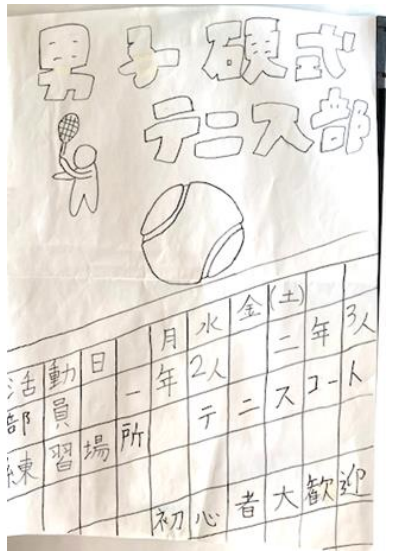 男子硬式
テニス部
活動日 月水金(土)
部員 一年2人 二年3人
練習場所 テニスコート
初心者大歓迎